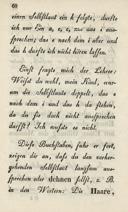 60
einen Selbstlaut ein h folgte, durfte
ich nur
sprechen; das h nach dem a und
das h durfte ich nicht hören lassen.
Einst fragte mich der Lehrer:
Weißt du wohl, mein Kind, war-
um die Selbstlaute doppelt, das e
nach dem i und das h da stehen,
da sie du doch nicht aussprechen
darfst? Ich wußte es nicht.
Diese Buchstaben, fuhr er fort,
zeigen dir an, daß du den vorher-
gehenden Selbstlaut langsam aus-
sprechen oder dehnen sollst, z. B.
in den Wörtern: Die Haare,